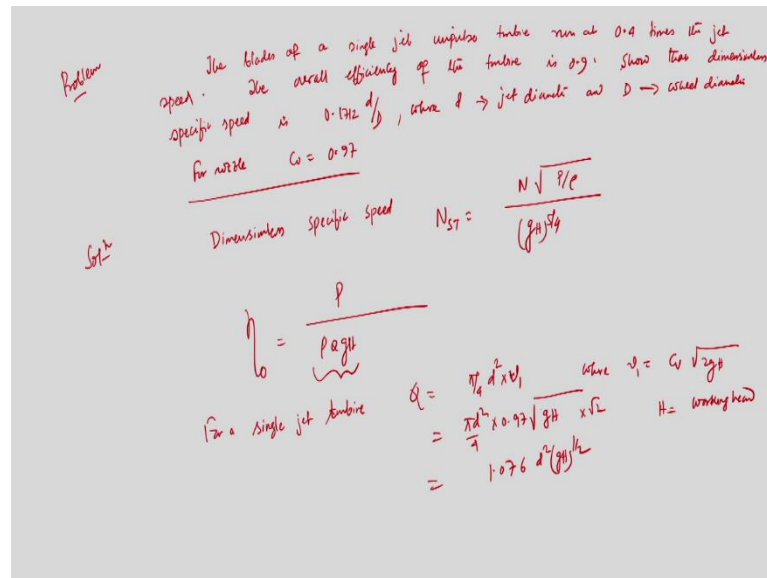 Problem The blades of a single jet impulse turbine run at 0.4 times the jet
speed. The overall efficiency of the turbine is 0.9. Show that dimensionless
specific speed is 0.1712 d/D, where d → jet diameter and D → wheel diameter
For nozzle Cv = 0.97
Solⁿ Dimensionless specific speed N_ST = N√(P/ρ) / (gH)^5/4
η_o = P / ρQgH
For a single jet turbine Q = π/4 d² × v₁ where v₁ = Cv √2gH
= πd²/4 × 0.97 √gH × √2 H = working head
= 1.076 d² (gH)^1/2